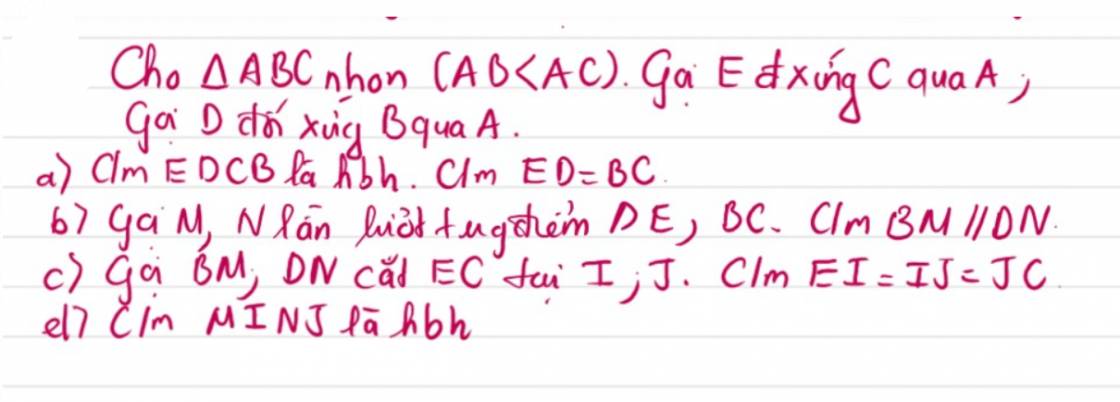 Cho Δ ABC nhọn (AB<AC). Gọi E đxứng C qua A,
Gọi D đối xứng B qua A.
a) C/m EDCB là hbh. C/m ED=BC.
b) Gọi M, N lần lượt tugđiểm DE, BC. C/m BM//DN.
c) Gọi BM, DN cắt EC tại I, J. C/m EI=IJ=JC
d) C/m MINJ là hbh